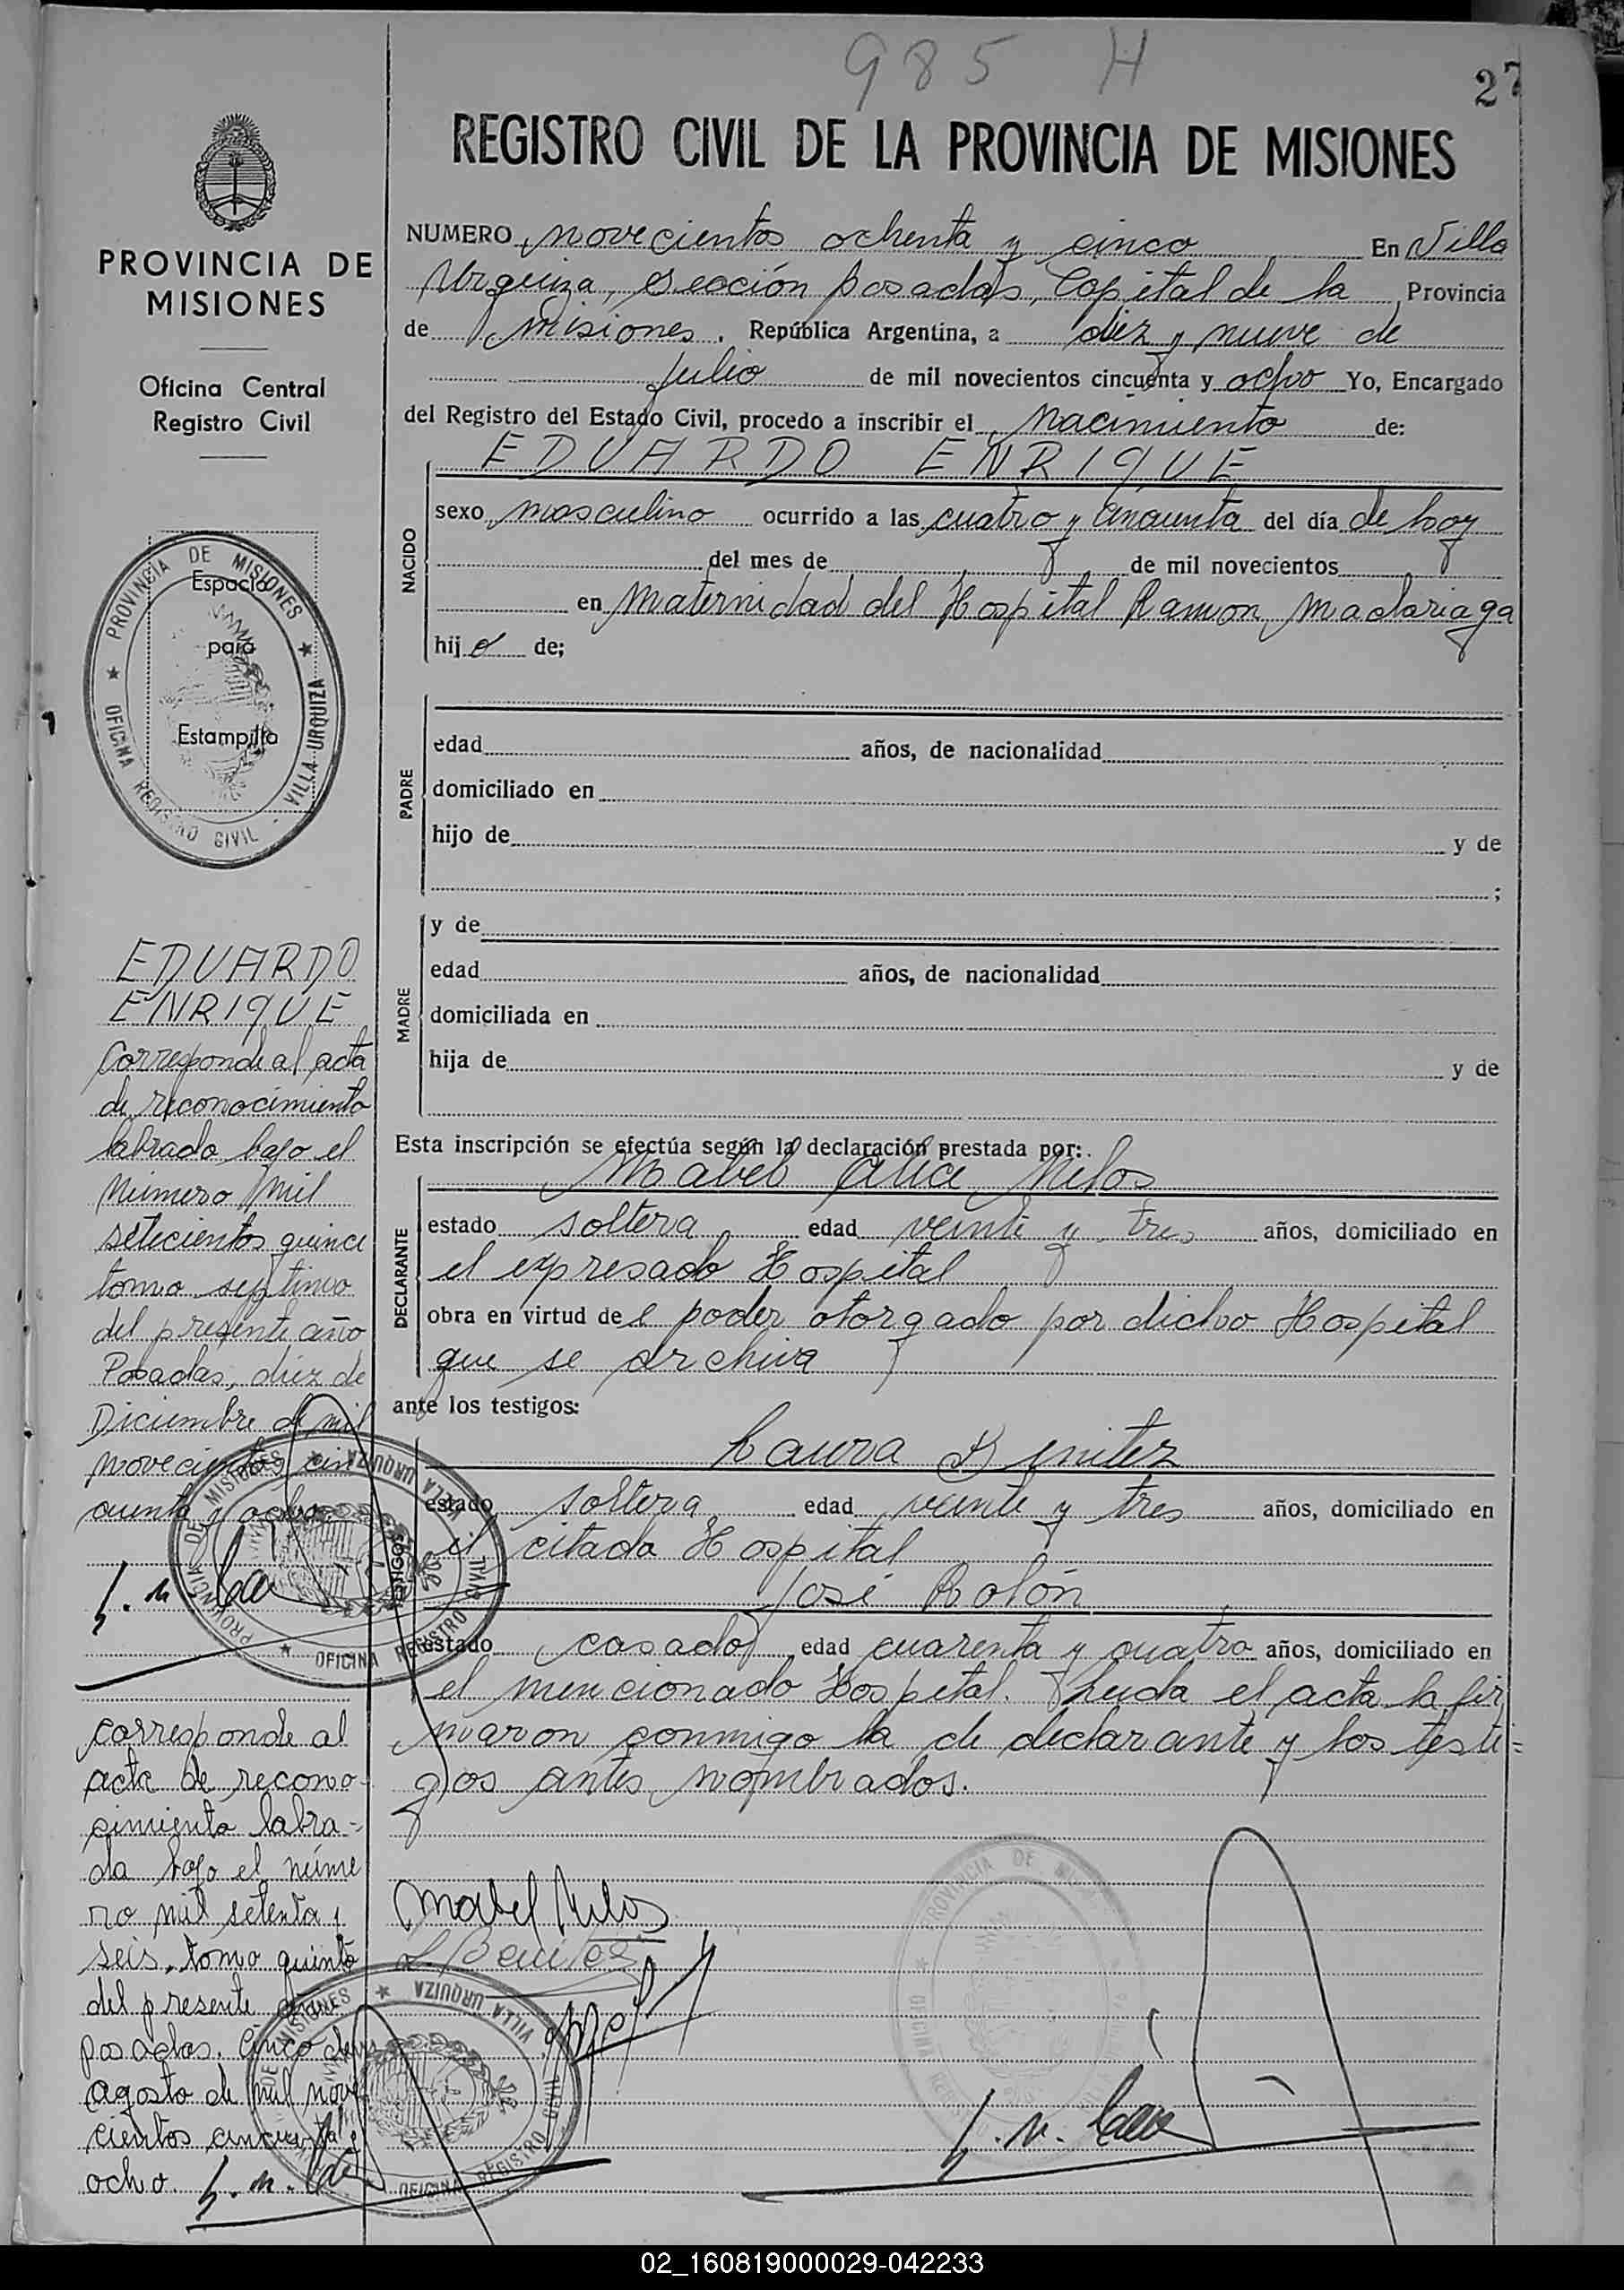 985 H
27
REGISTRO CIVIL DE LA PROVINCIA DE MISIONES
PROVINCIA DE
MISIONES
Oficina Central
Registro Civil
PROVINCIA DE MISIONES
OFICINA REGISTRO CIVIL - VILLA URQUIZA
Espacio
para
Estampilla
EDUARDO
ENRIQUE
Corresponde al acta
de reconocimiento
labrado bajo el
Número mil
setecientos quince
tomo septimo
del presente año
Posadas, diez de
Diciembre de mil
novecientos cin
cuenta y ocho.
corresponde al
acta de recono-
cimiento labra-
da bajo el núme
ro mil setenta y
seis, tomo quinto
del presente año
posadas. Cinco de
agosto de mil nove
cientos cincuenta y
ocho.
NUMERO novecientos ochenta y cinco En Villa
Urquiza, sección posadas, Capital de la Provincia
de misiones. República Argentina, a diez y nueve de
julio de mil novecientos cincuenta y ocho Yo, Encargado
del Registro del Estado Civil, procedo a inscribir el nacimiento de:
NACIDO
EDUARDO ENRIQUE
sexo masculino ocurrido a las cuatro y cincuenta del día de hoy
del mes de de mil novecientos
en maternidad del Hospital Ramon madariaga
hijo de;
PADRE
edad años, de nacionalidad
domiciliado en
hijo de y de
;
MADRE
y de
edad años, de nacionalidad
domiciliada en
hija de y de
Esta inscripción se efectúa según la declaración prestada por:
DECLARANTE
Mabel Alice Melos
estado soltera edad veinte y tres años, domiciliado en
el expresado Hospital
obra en virtud del poder otorgado por dicho Hospital
que se archiva
ante los testigos:
TESTIGOS
Laura Benitez
estado soltera edad veinte y tres años, domiciliado en
el citado Hospital
José Rolón
estado casado edad cuarenta y cuatro años, domiciliado en
el mencionado Hospital. Leida el acta la fir
maron conmigo la de declarante y los testi=
gos antes nombrados.
Mabel Melos
L. Benitez
PROVINCIA DE MISIONES
OFICINA REGISTRO CIVIL VILLA URQUIZA
02_160819000029-042233